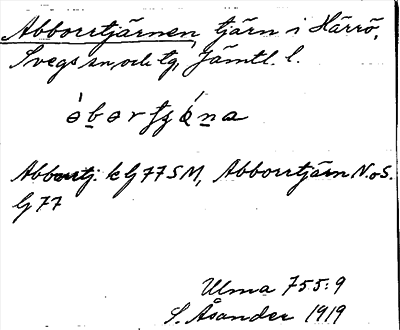 Abborrtjärnen tjärn i Härrö,
Svegs sn, och tg, Jämtl. l.
Abborrtj. k G 77 SM, Abborrtjärn N. o S.
G 77
Ulma 755:9
S. Åsander 1919